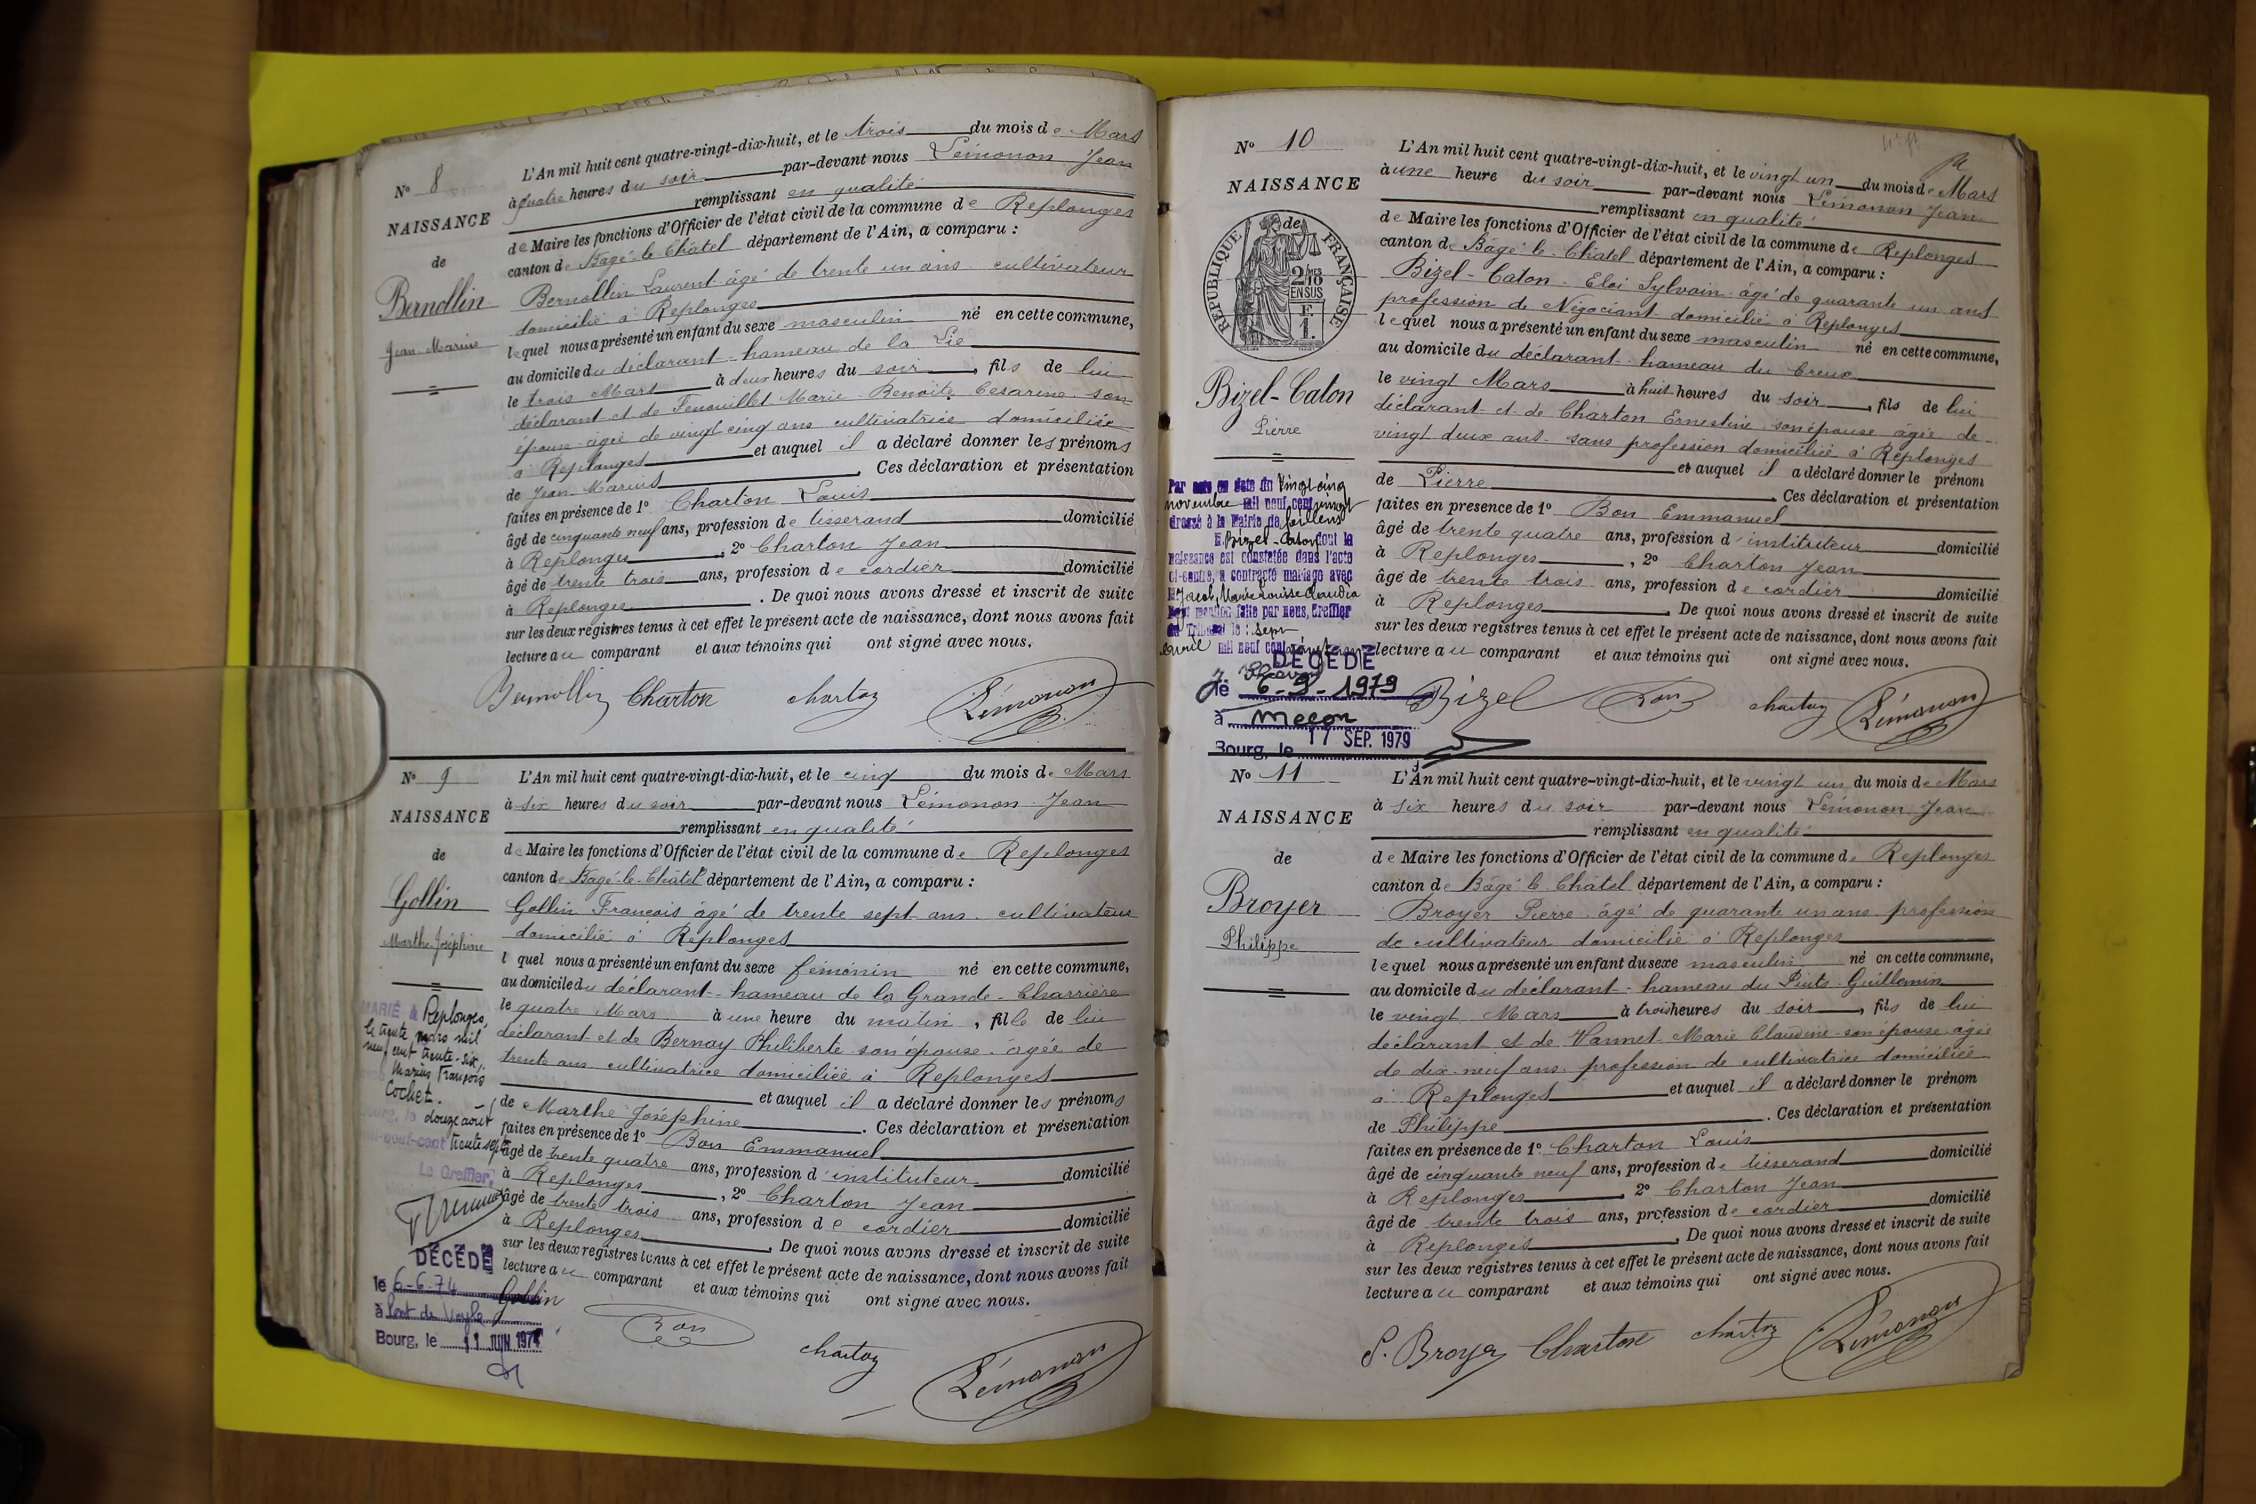 N° 8
NAISSANCE
de
Bernollin
Jean Marius
L'An mil huit cent quatre-vingt-dix-huit, et le trois du mois de Mars
à quatre heures du soir par-devant nous Lémonon Jean
remplissant en qualité
de Maire les fonctions d'Officier de l'état civil de la commune de Replonges
canton de Bâgé-le-Châtel département de l'Ain, a comparu :
Bernollin Laurent âgé de trente un ans cultivateur
domicilié à Replonges
lequel nous a présenté un enfant du sexe masculin né en cette commune,
au domicile du déclarant hameau de la Lie
le trois Mars à deux heures du soir, fils de lui
déclarant et de Fenouillet Marie Benoîte Césarine son
épouse âgée de vingt cinq ans cultivatrice domiciliée
à Replonges et auquel il a déclaré donner les prénoms
de Jean Marius. Ces déclaration et présentation
faites en présence de 1° Charton Louis
âgé de cinquante neuf ans, profession de tisserand domicilié
à Replonges, 2° Charton Jean
âgé de trente trois ans, profession de cordier domicilié
à Replonges. De quoi nous avons dressé et inscrit de suite
sur les deux registres tenus à cet effet le présent acte de naissance, dont nous avons fait
lecture au comparant et aux témoins qui ont signé avec nous.
Bernollin Charton Charton Lémonon
N° 9
NAISSANCE
de
Gollin
Marthe Joséphine
L'An mil huit cent quatre-vingt-dix-huit, et le cinq du mois de Mars
à six heures du soir par-devant nous Lémonon Jean
remplissant en qualité
de Maire les fonctions d'Officier de l'état civil de la commune de Replonges
canton de Bâgé-le-Châtel département de l'Ain, a comparu :
Gollin François âgé de trente sept ans cultivateur
domicilié à Replonges
l quel nous a présenté un enfant du sexe féminin né en cette commune,
au domicile du déclarant hameau de la Grande-Charrière
le quatre Mars à une heure du matin, fille de lui
déclarant et de Bernay Philiberte son épouse âgée de
trente ans cultivatrice domiciliée à Replonges
et auquel il a déclaré donner les prénoms
de Marthe Joséphine. Ces déclaration et présentation
faites en présence de 1° Bon Emmanuel
âgé de trente quatre ans, profession d'instituteur domicilié
à Replonges, 2° Charton Jean
âgé de trente trois ans, profession de cordier domicilié
à Replonges. De quoi nous avons dressé et inscrit de suite
sur les deux registres tenus à cet effet le présent acte de naissance, dont nous avons fait
lecture au comparant et aux témoins qui ont signé avec nous.
Gollin Bon Charton Lémonon
MARIÉ à Replonges,
le trente mars mil
neuf cent trente-six,
Marius François
Cochet.
Bourg, le douze août
mil-neuf-cent trente sept
Le Greffier,
DÉCÉDÉ
le 6-6-74
à Pont de Veyle
Bourg, le 11 JUIN 1974
N° 10
NAISSANCE
de
RÉPUBLIQUE FRANÇAISE
2/10 EN SUS
F 1.
Bizel-Caton
Pierre
L'An mil huit cent quatre-vingt-dix-huit, et le vingt un du mois de Mars
à une heure du soir par-devant nous Lémonon Jean
remplissant en qualité
de Maire les fonctions d'Officier de l'état civil de la commune de Replonges
canton de Bâgé-le-Châtel département de l'Ain, a comparu :
Bizel-Caton Eloi Sylvain âgé de quarante un ans
profession de Négociant domicilié à Replonges
lequel nous a présenté un enfant du sexe masculin né en cette commune,
au domicile du déclarant hameau du Creux
le vingt Mars à huit heures du soir, fils de lui
déclarant et de Charton Ernestine son épouse âgée de
vingt deux ans sans profession domiciliée à Replonges
et auquel il a déclaré donner le prénom
de Pierre. Ces déclaration et présentation
faites en présence de 1° Bon Emmanuel
âgé de trente quatre ans, profession d'instituteur domicilié
à Replonges, 2° Charton Jean
âgé de trente trois ans, profession de cordier domicilié
à Replonges. De quoi nous avons dressé et inscrit de suite
sur les deux registres tenus à cet effet le présent acte de naissance, dont nous avons fait
lecture au comparant et aux témoins qui ont signé avec nous.
Bizel Bon Charton Lémonon
Par acte en date du Vingt cinq
novembre mil neuf cent vingt
dressé à la Mairie de
Bizel-Caton dont la
naissance est constatée dans l'acte
ci-contre, a contracté mariage avec
Jacob, Marie Louise Claudia
mention faite par nous, Greffier
du Tribunal le sept
avril mil neuf cent
DÉCÉDÉ
le 6-9-1979
à Macon
Bourg, le 17 SEP. 1979
N° 11
NAISSANCE
de
Broyer
Philippe
L'An mil huit cent quatre-vingt-dix-huit, et le vingt un du mois de Mars
à six heures du soir par-devant nous Lémonon Jean
remplissant en qualité
de Maire les fonctions d'Officier de l'état civil de la commune de Replonges
canton de Bâgé-le-Châtel département de l'Ain, a comparu :
Broyer Pierre âgé de quarante un ans profession
de cultivateur domicilié à Replonges
lequel nous a présenté un enfant du sexe masculin né en cette commune,
au domicile du déclarant hameau du Puits-Guillemin
le vingt Mars à trois heures du soir, fils de lui
déclarant et de Vannet Marie Claudine son épouse âgée
de dix-neuf ans profession de cultivatrice domiciliée
à Replonges et auquel il a déclaré donner le prénom
de Philippe. Ces déclaration et présentation
faites en présence de 1° Charton Louis
âgé de cinquante neuf ans, profession de tisserand domicilié
à Replonges 2° Charton Jean
âgé de trente trois ans, profession de cordier domicilié
à Replonges. De quoi nous avons dressé et inscrit de suite
sur les deux registres tenus à cet effet le présent acte de naissance, dont nous avons fait
lecture au comparant et aux témoins qui ont signé avec nous.
P. Broyer Charton Charton Lémonon